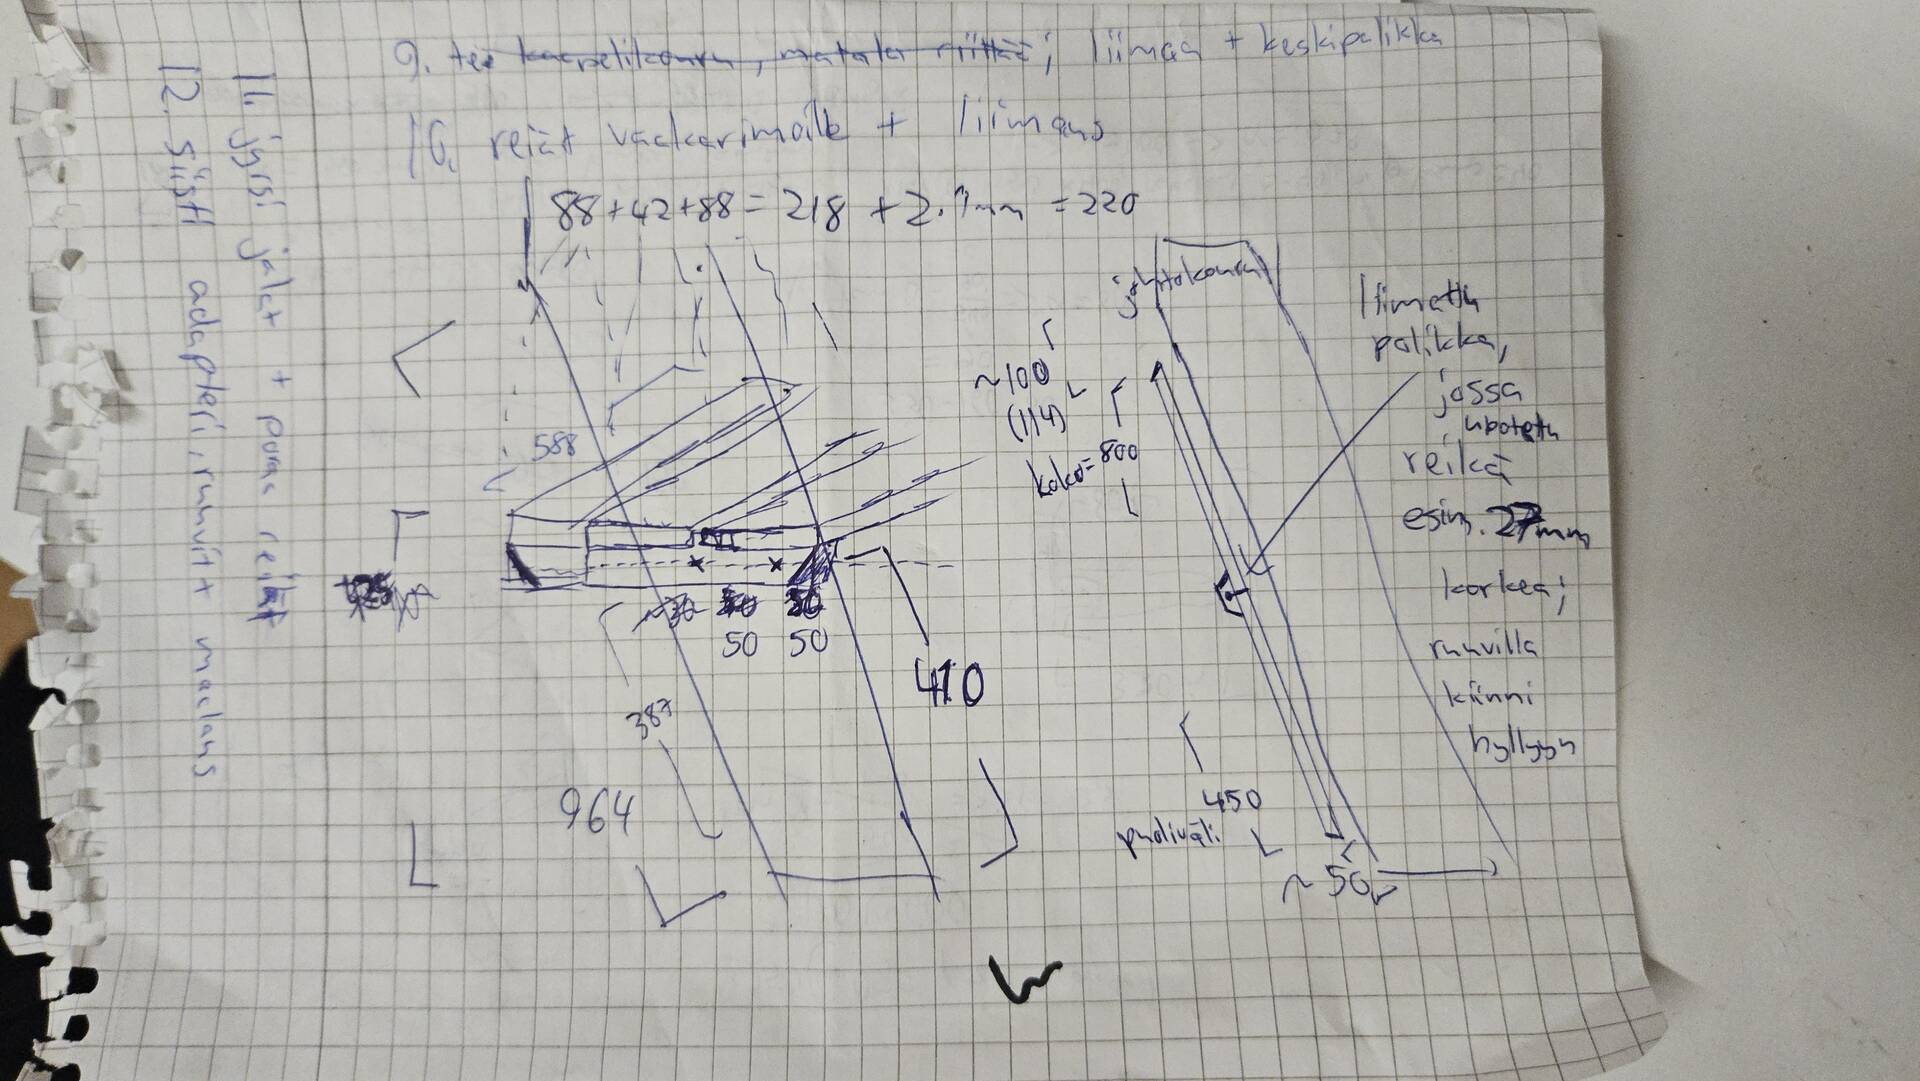 9. tee kaapelikouru, matala riittää; liimaa + keskipalikka
10. reiät vaakarimoille + liimaus
11. jyrsi jalat + poraa reiät
12. siisti adapteri, ruuvit + maalaus
88+42+88 = 218 + 2.1mm = 220
johtokouru
liimattu
palikka,
jossa
upotettu
reikä
esim. 27mm
korkea;
ruuvilla
kiinni
hyllyyn
~100
(114)
koko=800
588
50 50
410
387
964
450
puoliväli
~50